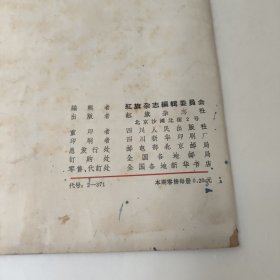 编辑者 红旗杂志编辑委员会
出版者 红旗杂志社
北京沙滩北街2号
重印者 四川人民出版社
印刷者 四川新华印刷厂
总发行处 邮电部北京邮局
订购处 全国各地邮局
零售、代订处 全国各地新华书店
代号:2—371 本期零售每册0.20元